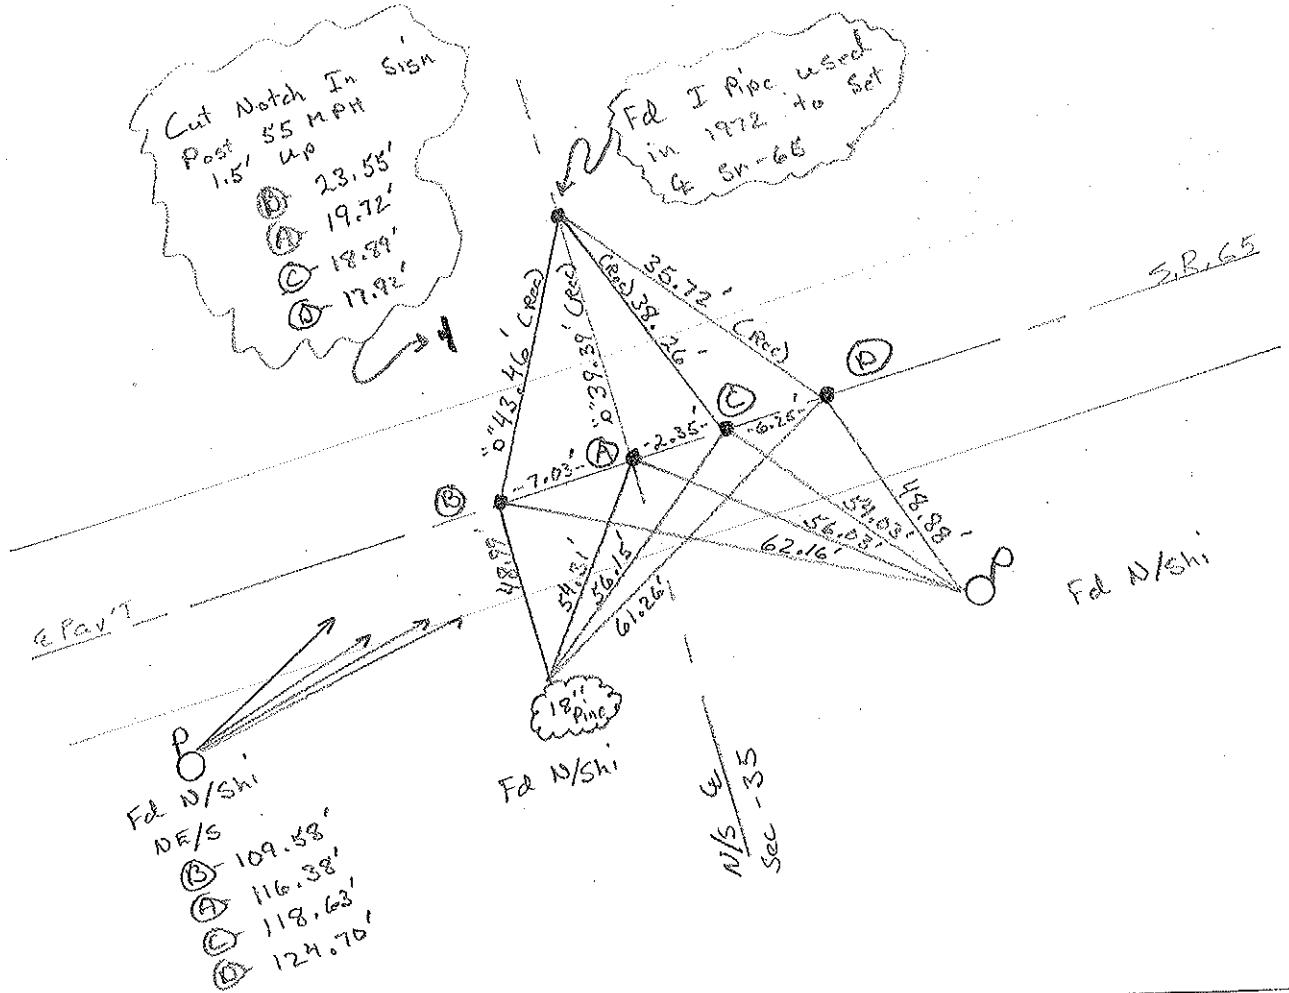 Cut Notch In Sign
Post 55 MPH
1.5' up
B - 23.55'
A - 19.72'
C - 18.89'
D - 17.92'
Fd I Pipe used
in 1972 to set
℄ SR-65
S.R. 65
=0"43.46' (Rec)
=0"39.39' (Rec)
(Rec) 38.26'
35.72' (Rec)
D
C
A
B
-7.03'-
-2.35'-
-6.25'-
48.99'
54.31'
56.15'
61.26'
62.16'
56.03'
54.03'
48.88'
℄ Pav'T
Fd N/Shi
18" Pine
Fd N/Shi
N/S ℄
Sec - 35
Fd N/Shi
NE/S
B - 109.58'
A - 116.38'
C - 118.63'
D - 124.70'